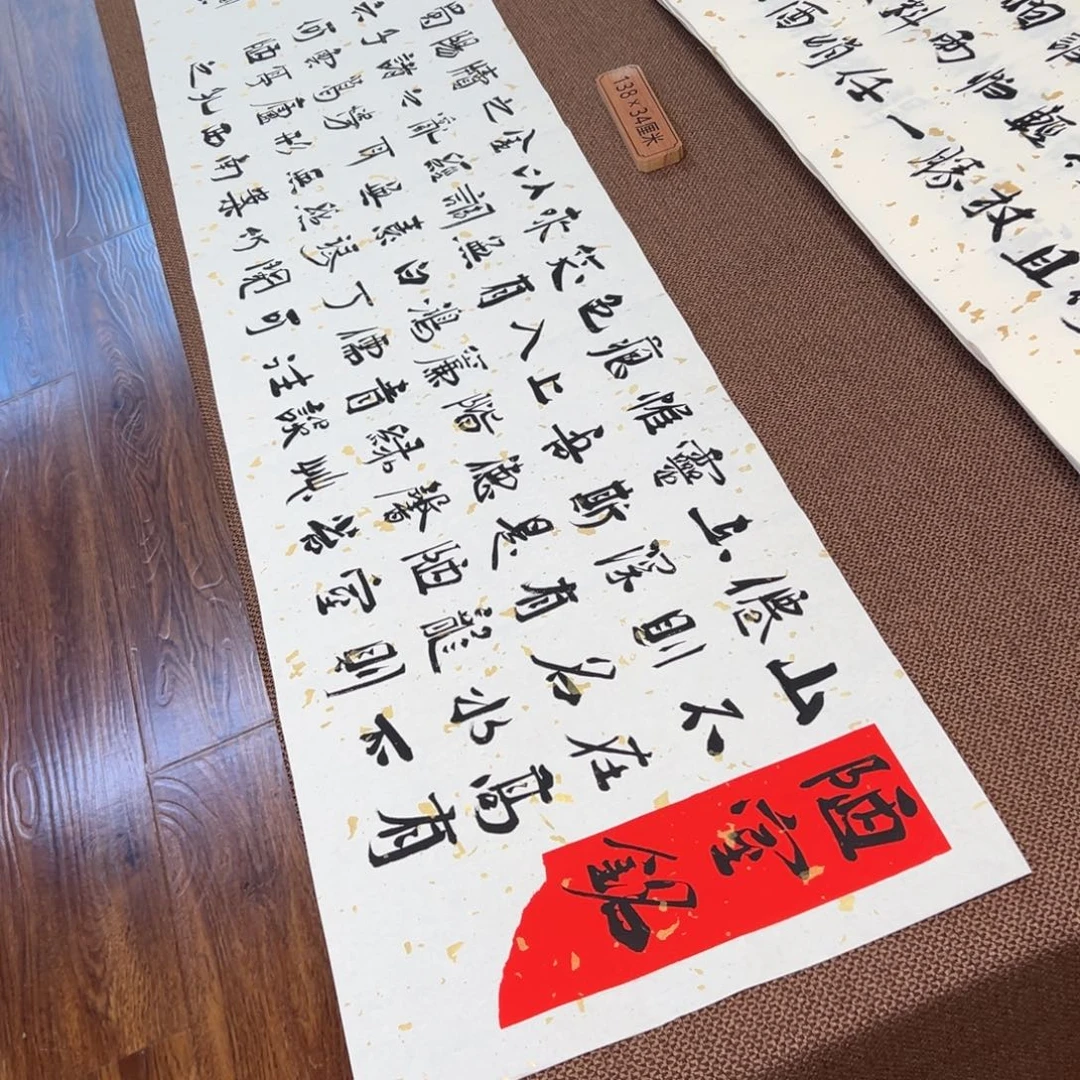 陋室銘
山不在高有
僊則名水不
在深有龍則
靈斯是陋室
惟吾德馨苔
痕上階綠艸
色入簾青談
笑有鴻儒往
來無白丁可
以調素琴閱
金經無絲竹
之亂耳無案
牘之勞形南
陽諸葛廬西
蜀子雲亭孔
子云何陋之
138×34厘米
且
杖
輕勝
怕一
雨任
料峭
酒